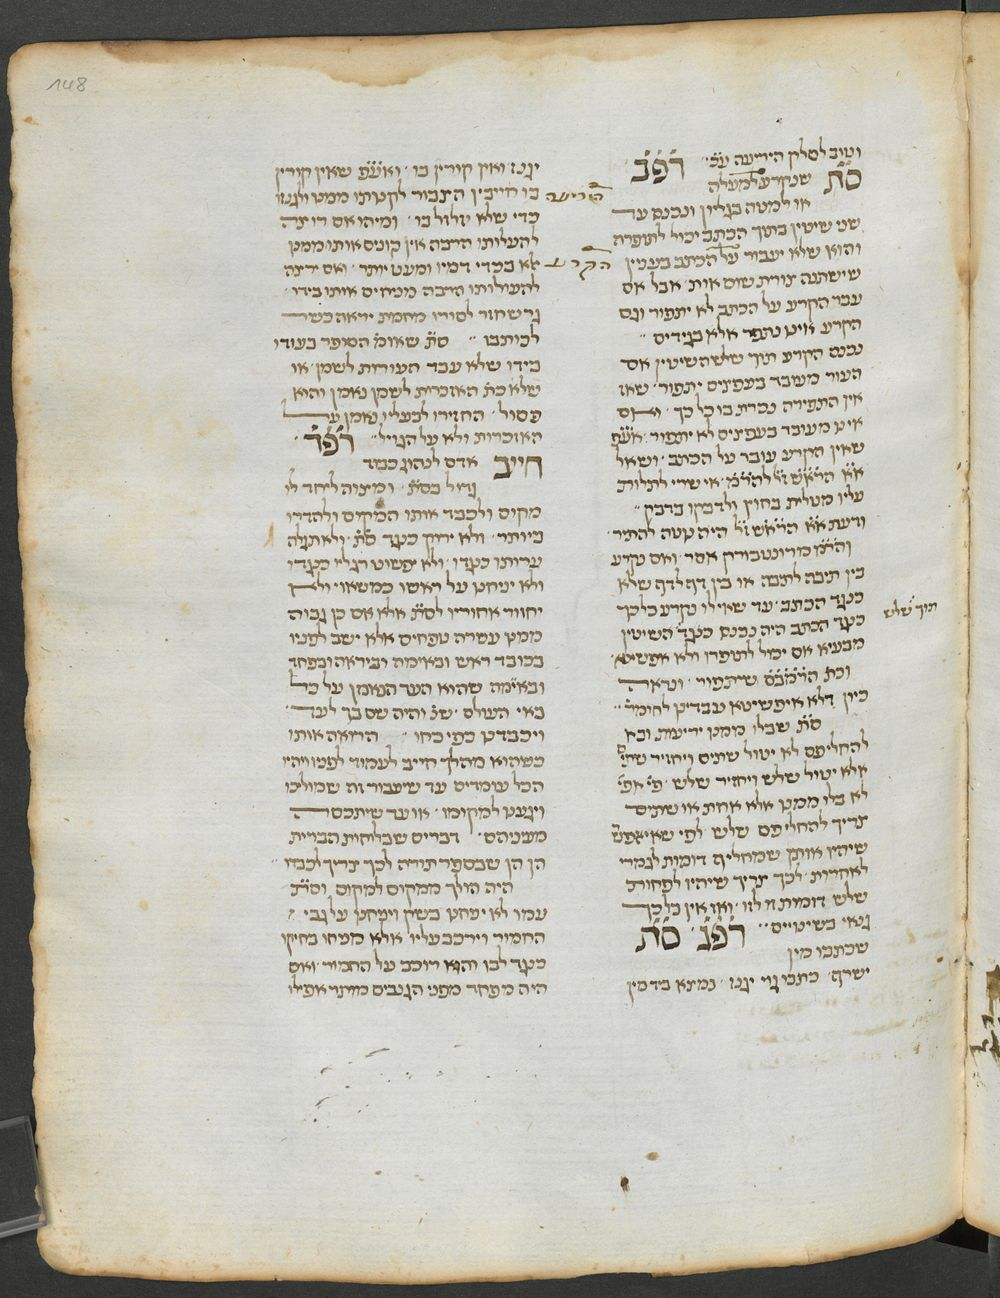 148
וטוב לסלק היריעה עכ״ל רפב
ס״ת שנקרע למעלה
או למטה בגליון ונכנס עד
שני שיטין בתוך הכתב יכול לתופרה
והוא שלא יעבור על הכתב בענין
שישתנה צורת שום אות אבל אם
עבר הקרע על הכתב לא יתפור וגם
הקרע אינו נתפר אלא בגידים
נכנס הקרע תוך שלשה שיטין אם
העור מעובד בעפצים יתפור שאז
אין התפירה נכרת בו כל כך ואם
אינו מעובד בעפצים לא יתפור אע״פ
שאין הקרע עובר על הכתב ושאל
א״א הרא״ש ז״ל להר״מ אי שרי לתלות
עליו מטלית בחוץ ולדבקו בדבק
ודעת א״א הרא״ש ז״ל היה נוטה להתיר
והר״מ מרוטנבורק אסר ואם נקרע
בין תיבה לתיבה או בין דף לדף שלא
כנגד הכתב עד שאילו נקרע כל כך
כנגד הכתב היה נכנס כנגד השיטין
תוך שלש
מבעיא אם יכול לתופרו ולא אפשיטא
וכת׳ הרמב״ם שיתפור ונראה
כיון דלא איפשיטא עבדינן לחומר׳
ס״ת שבלו ממנו יריעות ובא
להחליפם לא יטול שתים ויחזיר שתי׳
אלא יטול שלש ויחזיר שלש פי׳ אפי׳
לא בלו ממנו אלא אחת או שתים
צריך להחליפם שלש לפי שאי אפשר
שיהיו אותן שמחליף דומות לגמרי
לאחרות לכך צריך שיהיו לפחות
שלש דומות זו לזו ואז אין כל כך
גנאי בשינויים רפג ס״ת
שכתבו מין
ישרף כתבו גוי יגנז נמצא ביד מין
יגנז ואין קורין בו ואע״פ שאין קורין
בו חייבין הציבור לקנותו ממנו ויגנזו
כדי שלא יזלזל בו ומיהו אם רוצה
להעלותו הרבה אין קונים אותו ממנו
אלא בכדי דמיו ומעט יותר ואם ירצה
להעלותו הרבה מניחים אותו בידו
גר שחזר לסורו מחמת יראה כשר
לכותבו ס״ת שאומ׳ הסופר בעודו
בידו שלא עבד העורות לשמן או
שלא כת׳ האזכרות לשמן נאמן והוא
פסול החזירו לבעליו נאמן על
האזכרות ולא על הגויל רפד
חייב אדם לנהוג כבוד
גדול בס״ת ומצוה לייחד לו
מקום ולכבד אותו המקום ולהדרו
ביותר ולא ירוק כנגד ס״ת ולא תגלה
ערותו כנגדו ולא יפשוט רגליו כנגדו
ולא יניחנו על ראשו כמשאוי ולא
יחזור אחוריו לס״ת אלא אם כן גבוה
ממנו עשרה טפחים אלא ישב לפניו
בכובד ראש ובאימה וביראה ובפחד
ובאימה שהוא העד הנאמן על כל
באי העולם שנ׳ והיה שם בך לעד
ויכבדנו כפי כחו הרואה אותו
כשהוא מהלך חייב לעמוד לפניו ויהיו
הכל עומדים עד שיעבור זה שמוליכו
ויגענו למקומו או עד שיתכסה
מעיניהם דברים שבלוחות הברית
הן הן שבספר תורה לכך צריך לכבדו
היה הולך ממקום למקום וס״ת
עמו לא יניחנו בשק ויניחנו על גבי
החמור וירכב עליו אלא מניחו בחיקו
כנגד לבו והוא רוכב על החמור ואם
היה מפחד מפני הגנבים מותר אפילו